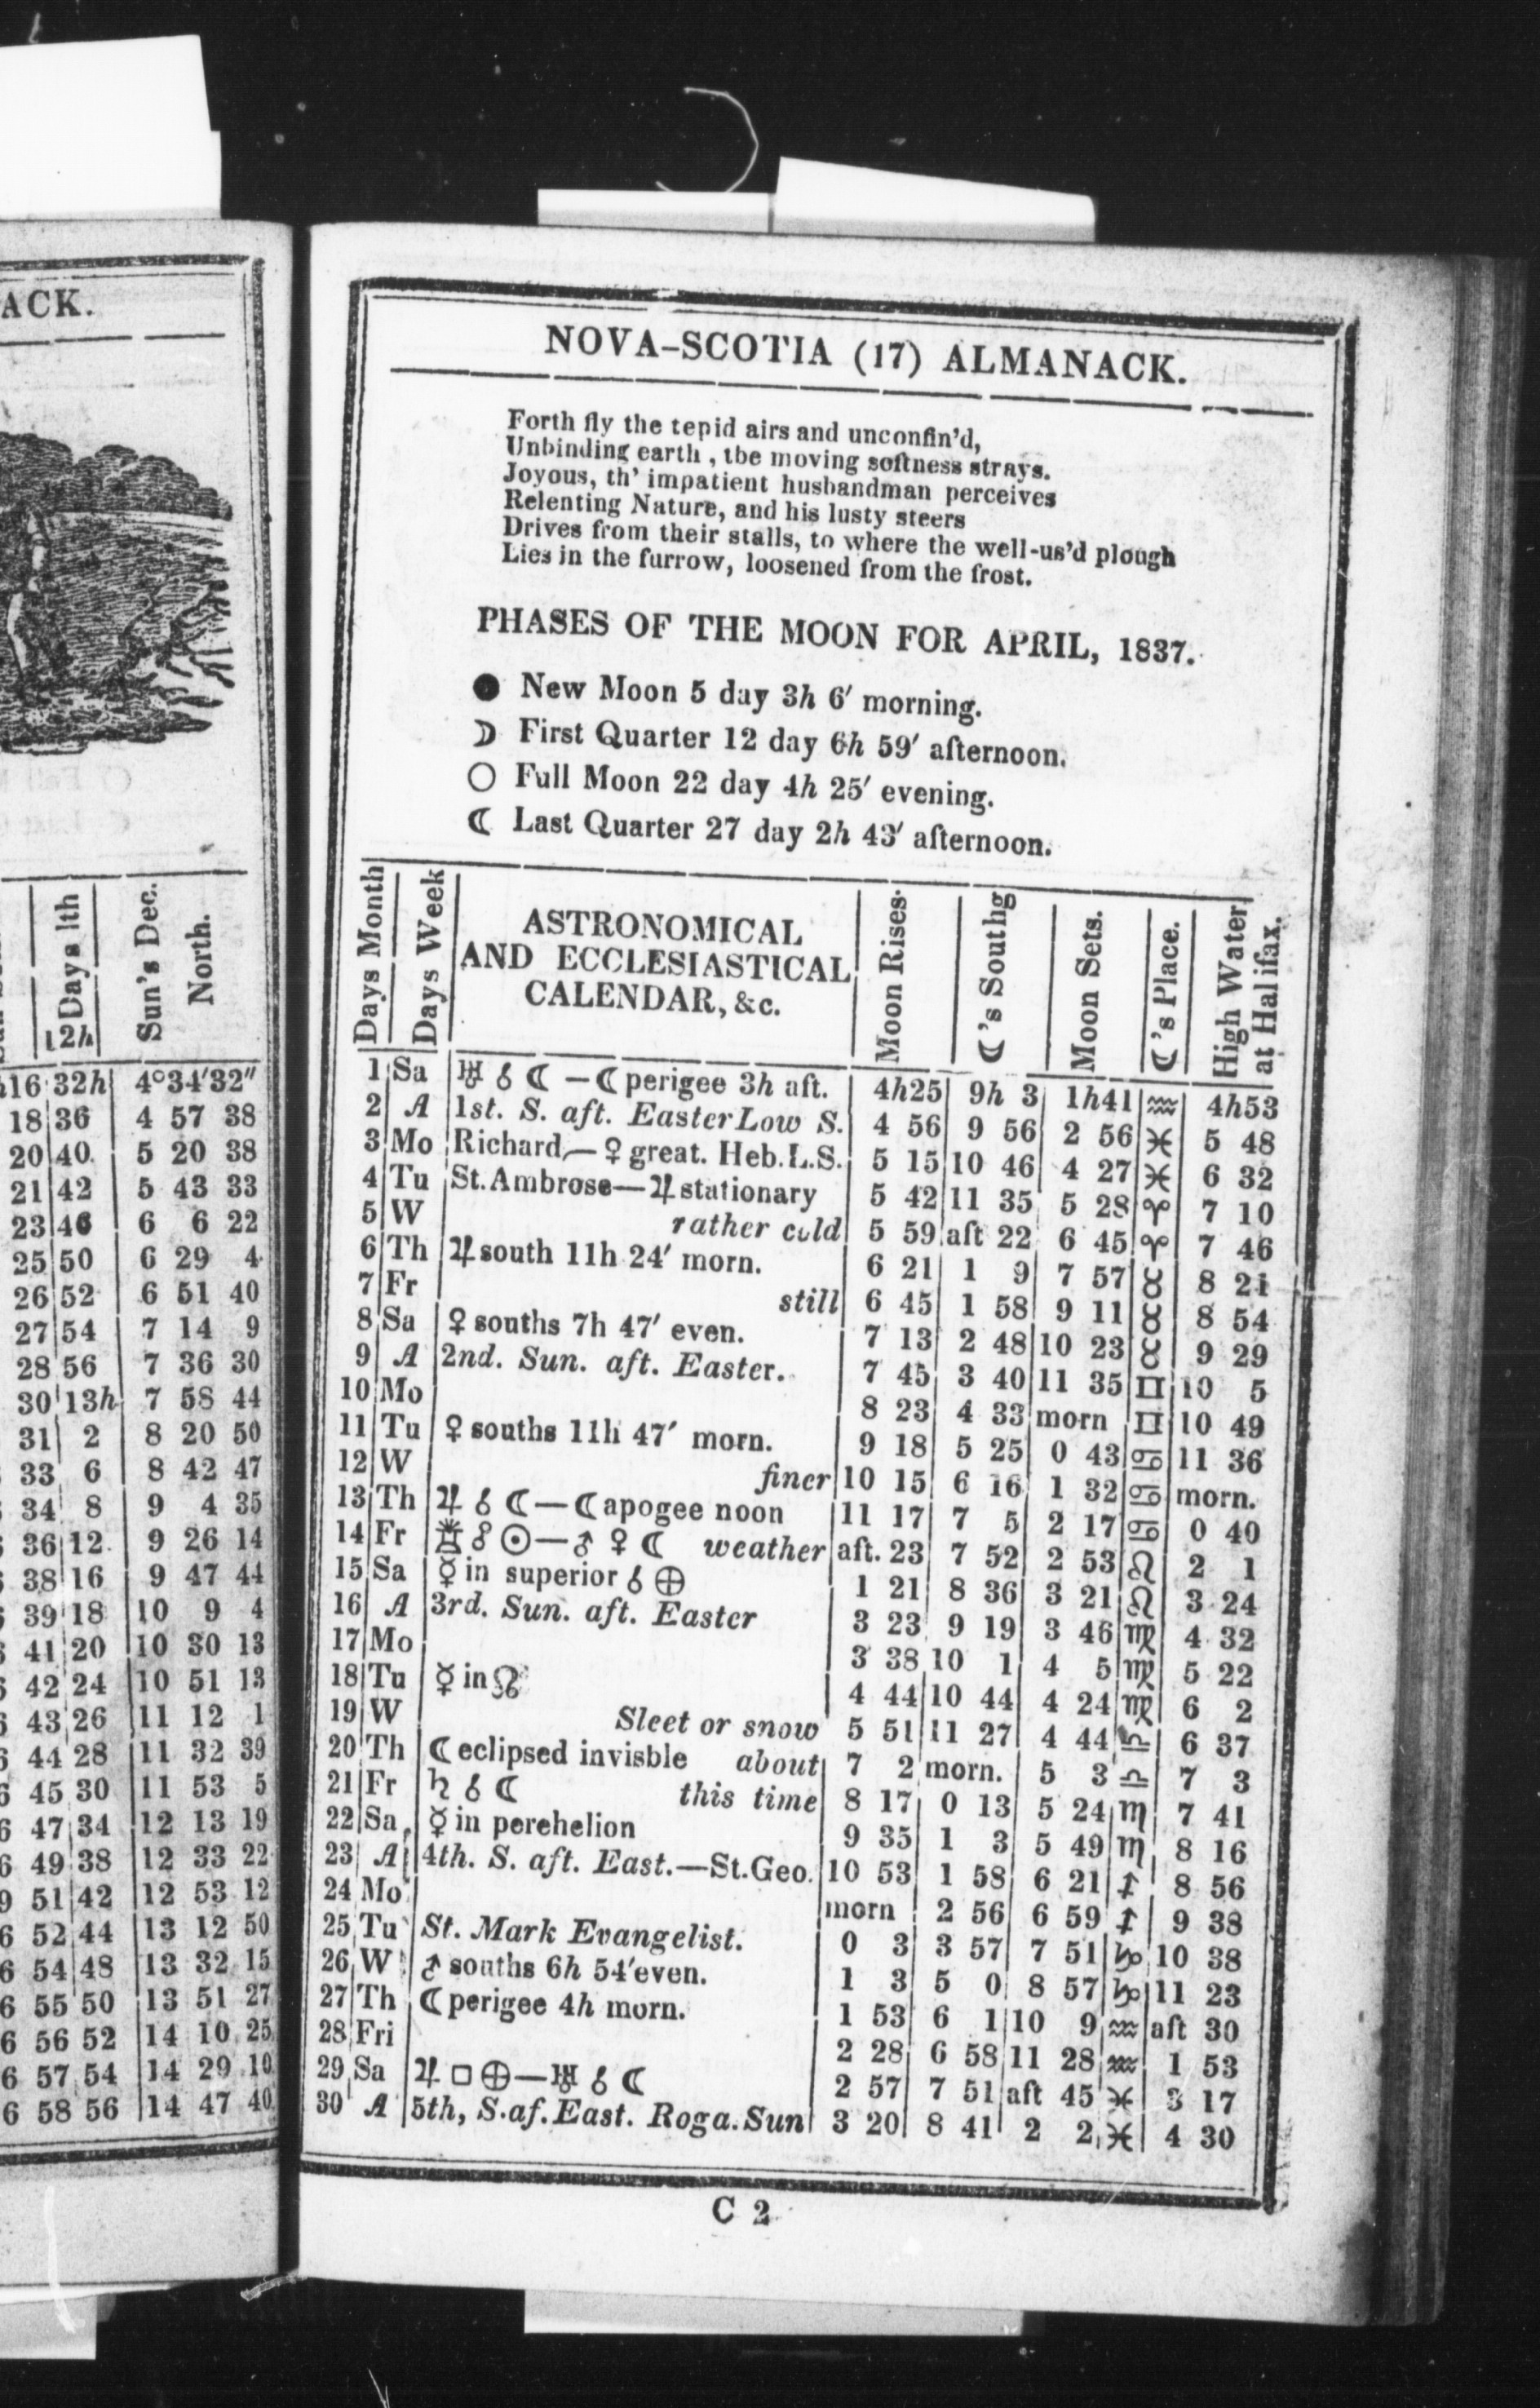 ACK.
Days lth
12h
Sun's Dec.
North.
16 32h 4°34′32″
18 36 4 57 38
20 40. 5 20 38
21 42 5 43 33
23 46 6 6 22
25 50 6 29 4
26 52 6 51 40
27 54 7 14 9
28 56 7 36 30
30 13h 7 58 44
31 2 8 20 50
33 6 8 42 47
34 8 9 4 35
36 12. 9 26 14
38 16 9 47 44
39 18 10 9 4
41 20 10 30 13
42 24 10 51 13
43 26 11 12 1
44 28 11 32 39
45 30 11 53 5
6 47 34 12 13 19
6 49 38 12 33 22
51 42 12 53 12
6 52 44 13 12 50
6 54 48 13 32 15
6 55 50 13 51 27
6 56 52 14 10 25
6 57 54 14 29 10
6 58 56 14 47 40
NOVA-SCOTIA (17) ALMANACK.
Forth fly the tepid airs and unconfin'd,
Unbinding earth , tbe moving softness strays.
Joyous, th' impatient husbandman perceives
Relenting Nature, and his lusty steers
Drives from their stalls, to where the well-us'd plough
Lies in the furrow, loosened from the frost.
PHASES OF THE MOON FOR APRIL, 1837.
● New Moon 5 day 3h 6′ morning.
☽ First Quarter 12 day 6h 59′ afternoon.
○ Full Moon 22 day 4h 25′ evening.
☾ Last Quarter 27 day 2h 43′ afternoon.
Days Month
Days Week
ASTRONOMICAL
AND ECCLESIASTICAL
CALENDAR, &c.
Moon Rises.
☾'s Southg
Moon Sets.
☾'s Place.
High Water
at Halifax.
1 Sa ♅ ☌ ☾ — ☾ perigee 3h aft. 4h25 9h 3 1h41 ♒ 4h53
2 A 1st. S. aft. Easter Low S. 4 56 9 56 2 56 ♓ 5 48
3 Mo Richard,— ♀ great. Heb. L.S. 5 15 10 46 4 27 ♓ 6 32
4 Tu St. Ambrose—♃ stationary 5 42 11 35 5 28 ♈ 7 10
5 W rather cold 5 59 aft 22 6 45 ♈ 7 46
6 Th ♃ south 11h 24′ morn. 6 21 1 9 7 57 ♉ 8 21
7 Fr still 6 45 1 58 9 11 ♉ 8 54
8 Sa ♀ souths 7h 47′ even. 7 13 2 48 10 23 ♉ 9 29
9 A 2nd. Sun. aft. Easter. 7 45 3 40 11 35 ♊ 10 5
10 Mo 8 23 4 33 morn ♊ 10 49
11 Tu ♀ souths 11h 47′ morn. 9 18 5 25 0 43 ♋ 11 36
12 W finer 10 15 6 16 1 32 ♋ morn.
13 Th ♃ ☌ ☾ — ☾ apogee noon 11 17 7 5 2 17 ♋ 0 40
14 Fr ⚴ ☍ ☉ — ♂ ♀ ☾ weather aft. 23 7 52 2 53 ♌ 2 1
15 Sa ☿ in superior ☌ ⊕ 1 21 8 36 3 21 ♌ 3 24
16 A 3rd. Sun. aft. Easter 3 23 9 19 3 46 ♍ 4 32
17 Mo 3 38 10 1 4 5 ♍ 5 22
18 Tu ☿ in ☊ 4 44 10 44 4 24 ♍ 6 2
19 W Sleet or snow 5 51 11 27 4 44 ♎ 6 37
20 Th ☾ eclipsed invisble about 7 2 morn. 5 3 ♎ 7 3
21 Fr ♄ ☌ ☾ this time 8 17 0 13 5 24 ♏ 7 41
22 Sa ☿ in perehelion 9 35 1 3 5 49 ♏ 8 16
23 A 4th. S. aft. East.—St. Geo. 10 53 1 58 6 21 ♐ 8 56
24 Mo morn 2 56 6 59 ♐ 9 38
25 Tu St. Mark Evangelist. 0 3 3 57 7 51 ♑ 10 38
26 W ♂ souths 6h 54′ even. 1 3 5 0 8 57 ♑ 11 23
27 Th ☾ perigee 4h morn. 1 53 6 1 10 9 ♒ aft 30
28 Fri 2 28 6 58 11 28 ♒ 1 53
29 Sa ♃ □ ⊕ — ♅ ☌ ☾ 2 57 7 51 aft 45 ♓ 3 17
30 A 5th, S. af. East. Roga. Sun 3 20 8 41 2 2 ♓ 4 30
C 2